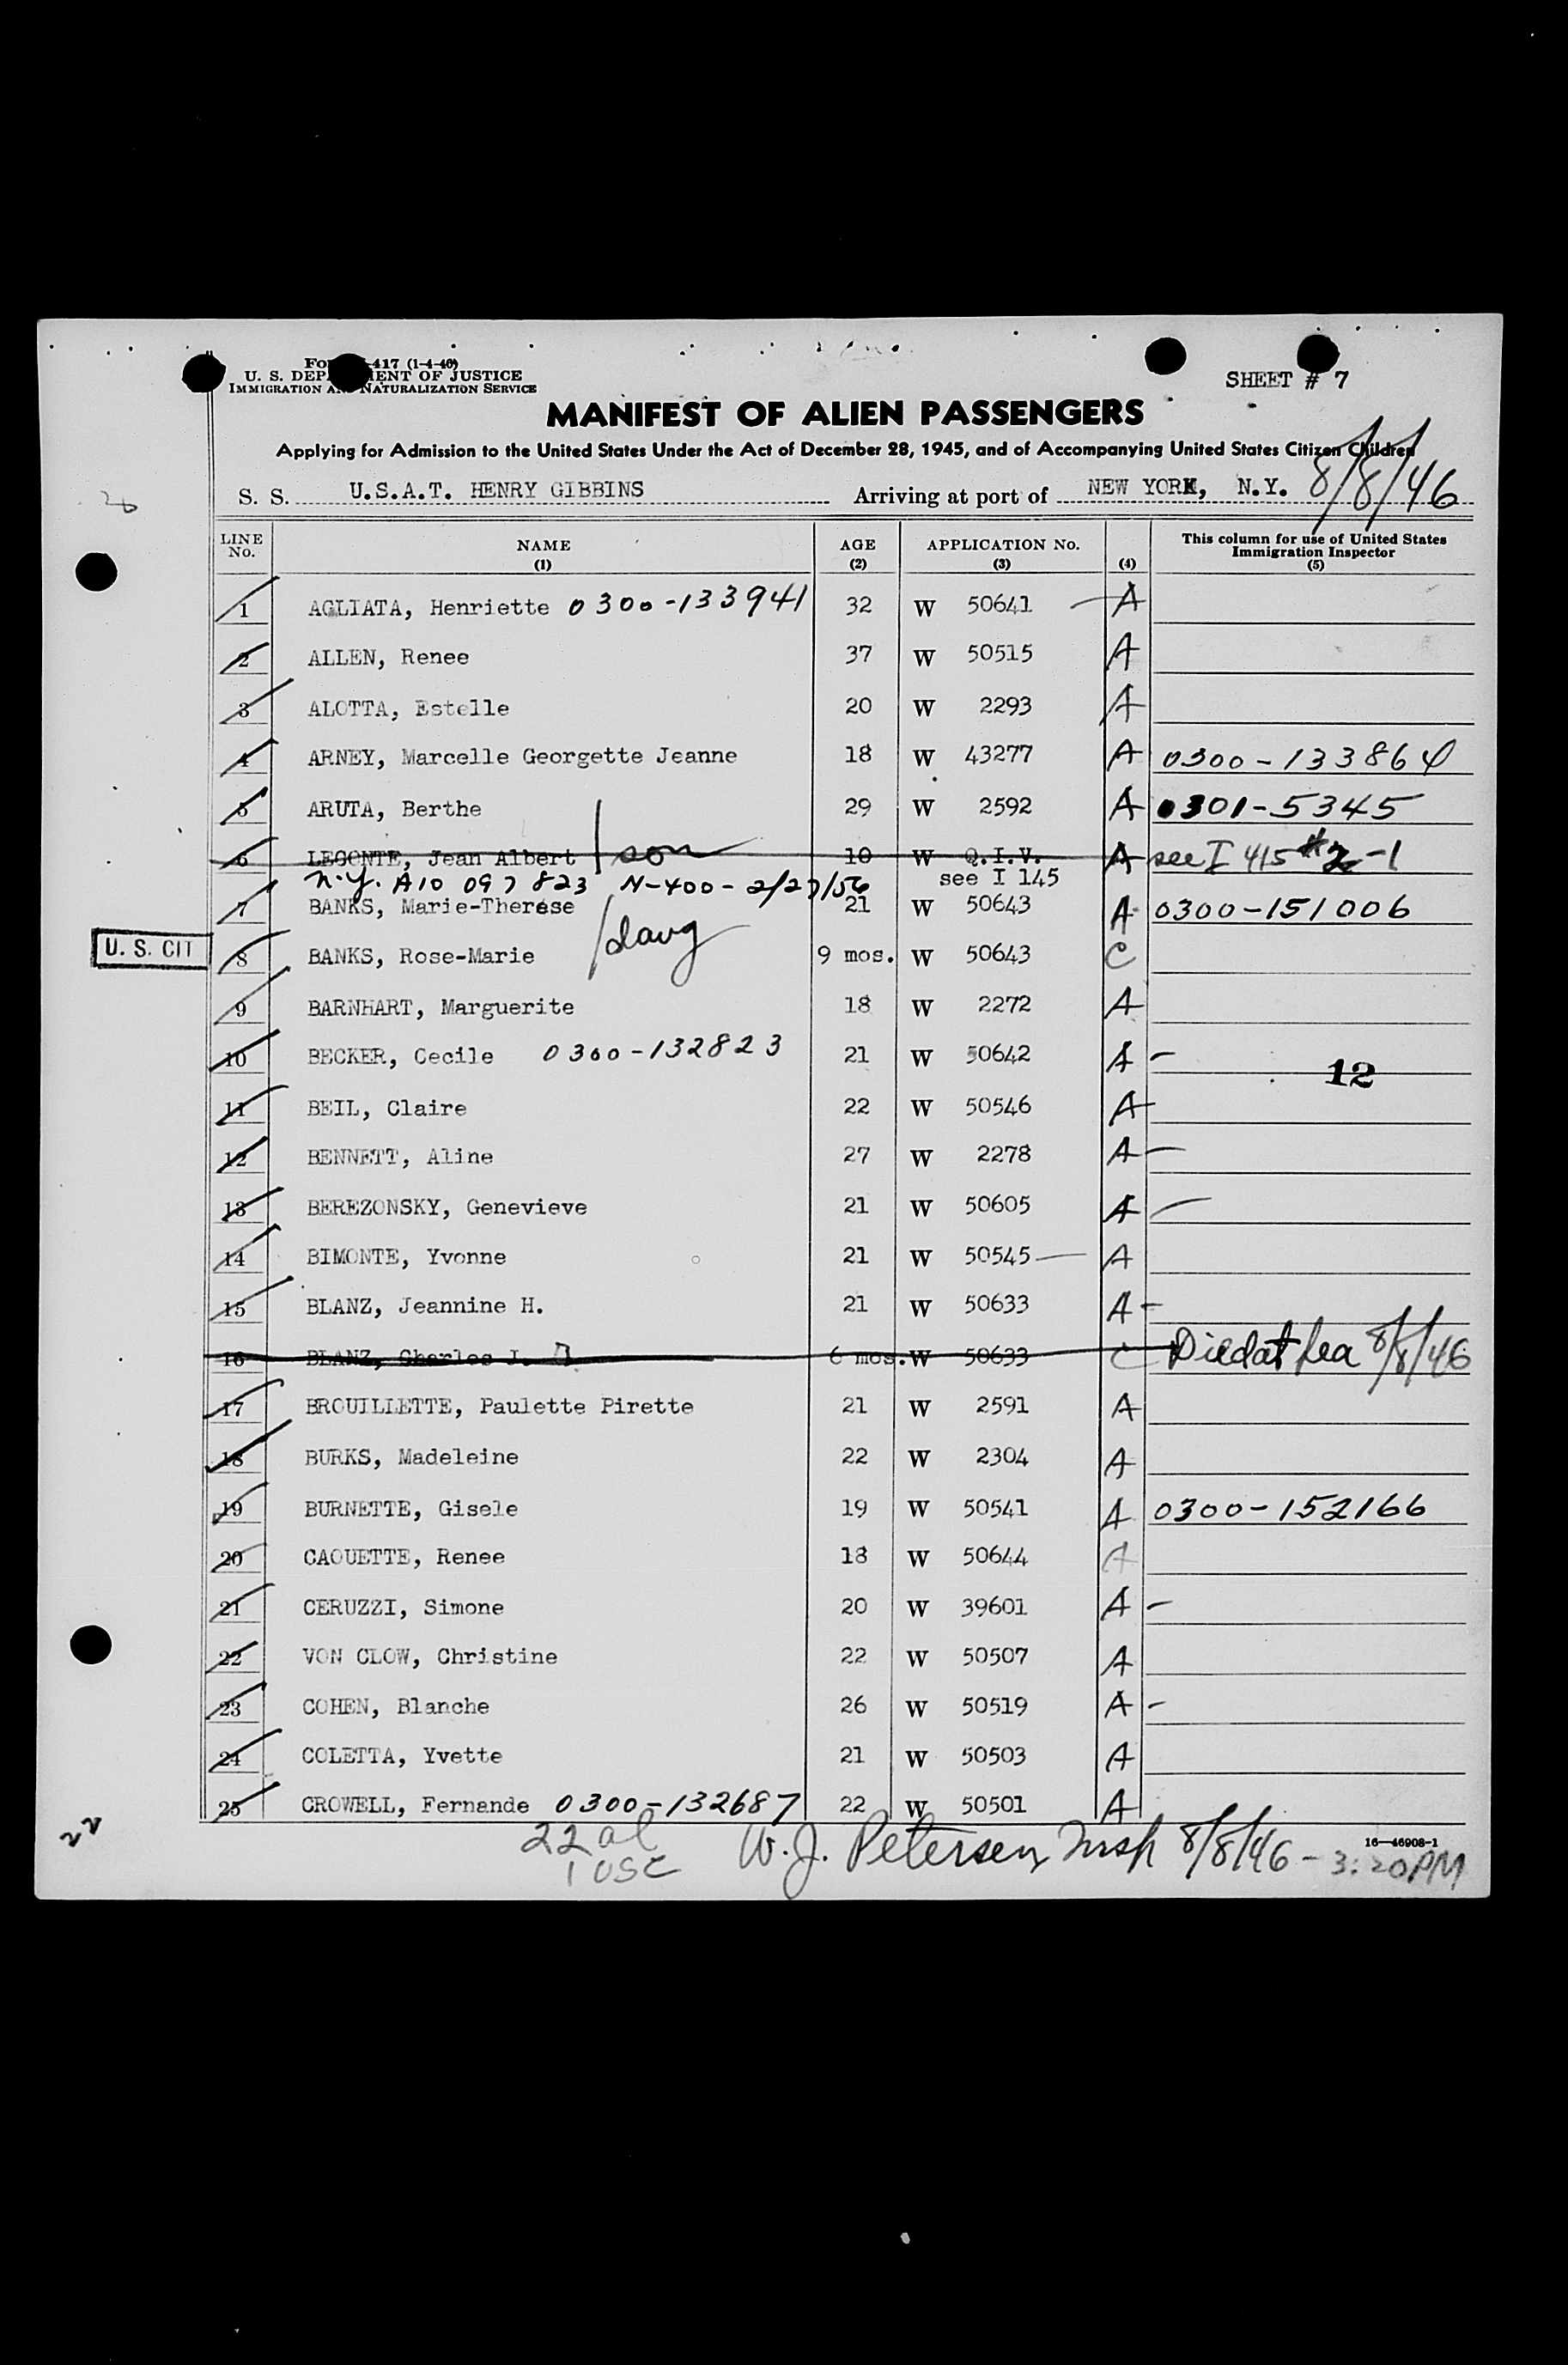 SHEET # 7
417 (1-4-46)
U. S. DEPARTMENT OF JUSTICE
IMMIGRATION AND NATURALIZATION SERVICE
MANIFEST OF ALIEN PASSENGERS
Applying for Admission to the United States Under the Act of December 28, 1945, and of Accompanying United States Citizen Children
S. S. U.S.A.T. HENRY GIBBINS Arriving at port of NEW YORK, N.Y. 8/8/46
LINE No. NAME (1) AGE (2) APPLICATION No. (3) (4) This column for use of United States Immigration Inspector (5)
1 AGLIATA, Henriette 0300-133941 32 W 50641 A
2 ALLEN, Renee 37 W 50515 A
3 ALOTTA, Estelle 20 W 2293 A
4 ARNEY, Marcelle Georgette Jeanne 18 W 43277 A 0300-133864
5 ARUTA, Berthe 29 W 2592 A 0301-5345
6 LECONTE, Jean Albert son 10 W Q.I.V. A see I 415 #2-1
N.Y. A10 097 823 N-400-2/27/56 see I 145
7 BANKS, Marie-Therese 21 W 50643 A 0300-151006
U. S. CIT 8 BANKS, Rose-Marie daug 9 mos. W 50643 C
9 BARNHART, Marguerite 18 W 2272 A
10 BECKER, Cecile 0300-132823 21 W 50642 A - 12
11 BEIL, Claire 22 W 50546 A
12 BENNETT, Aline 27 W 2278 A
13 BEREZONSKY, Genevieve 21 W 50605 A
14 BIMONTE, Yvonne 21 W 50545 A
15 BLANZ, Jeannine H. 21 W 50633 A -
16 BLANZ, Charles J. 6 mos. W 50633 C Died at Sea 8/8/46
17 BROUILLETTE, Paulette Pirette 21 W 2591 A
18 BURKS, Madeleine 22 W 2304 A
19 BURNETTE, Gisele 19 W 50541 A 0300-152166
20 CAOUETTE, Renee 18 W 50644 A
21 CERUZZI, Simone 20 W 39601 A -
22 VON CLOW, Christine 22 W 50507 A
23 COHEN, Blanche 26 W 50519 A -
24 COLETTA, Yvette 21 W 50503 A
25 CROWELL, Fernande 0300-132687 22 W 50501 A
16—46908-1
22 22 al W. J. Petersen Insp 8/8/46 - 3:20PM
1 USC